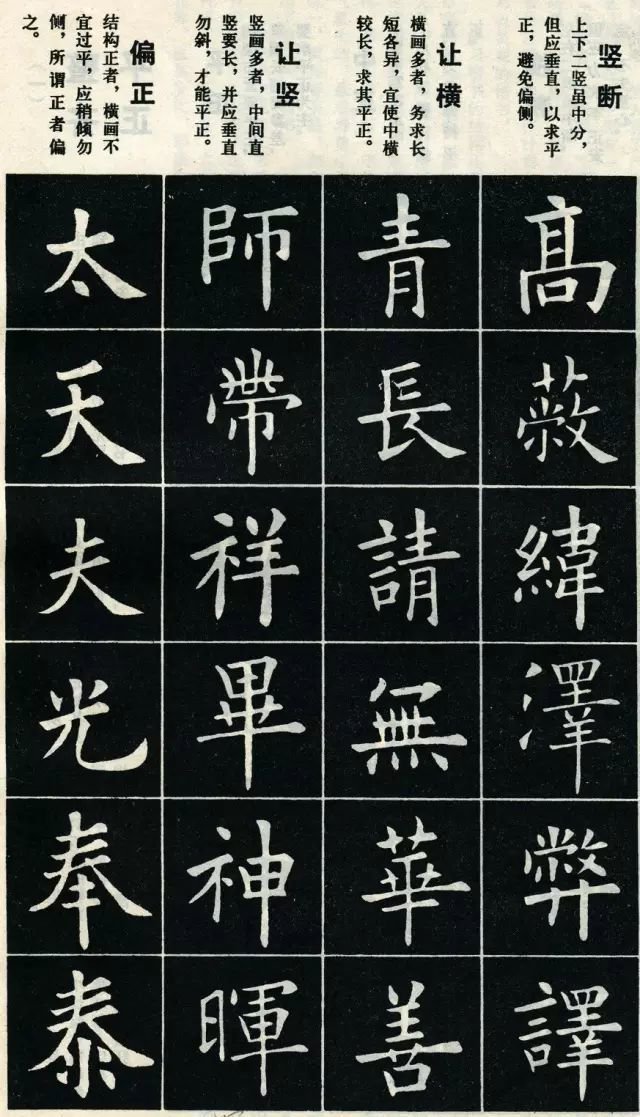 竖断
上下二竖虽中分，
但应垂直，以求平
正，避免偏侧。
高
蔽
緯
澤
弊
譯
让横
横画多者，务求长
短各异，宜使中横
较长，求其平正。
青
長
請
無
華
善
让竖
竖画多者，中间直
竖要长，并应垂直
勿斜，才能平正。
師
帶
祥
畢
神
暉
偏正
结构正者，横画不
宜过平，应稍倾勿
侧，所谓正者偏
之。
太
天
夫
光
奉
泰